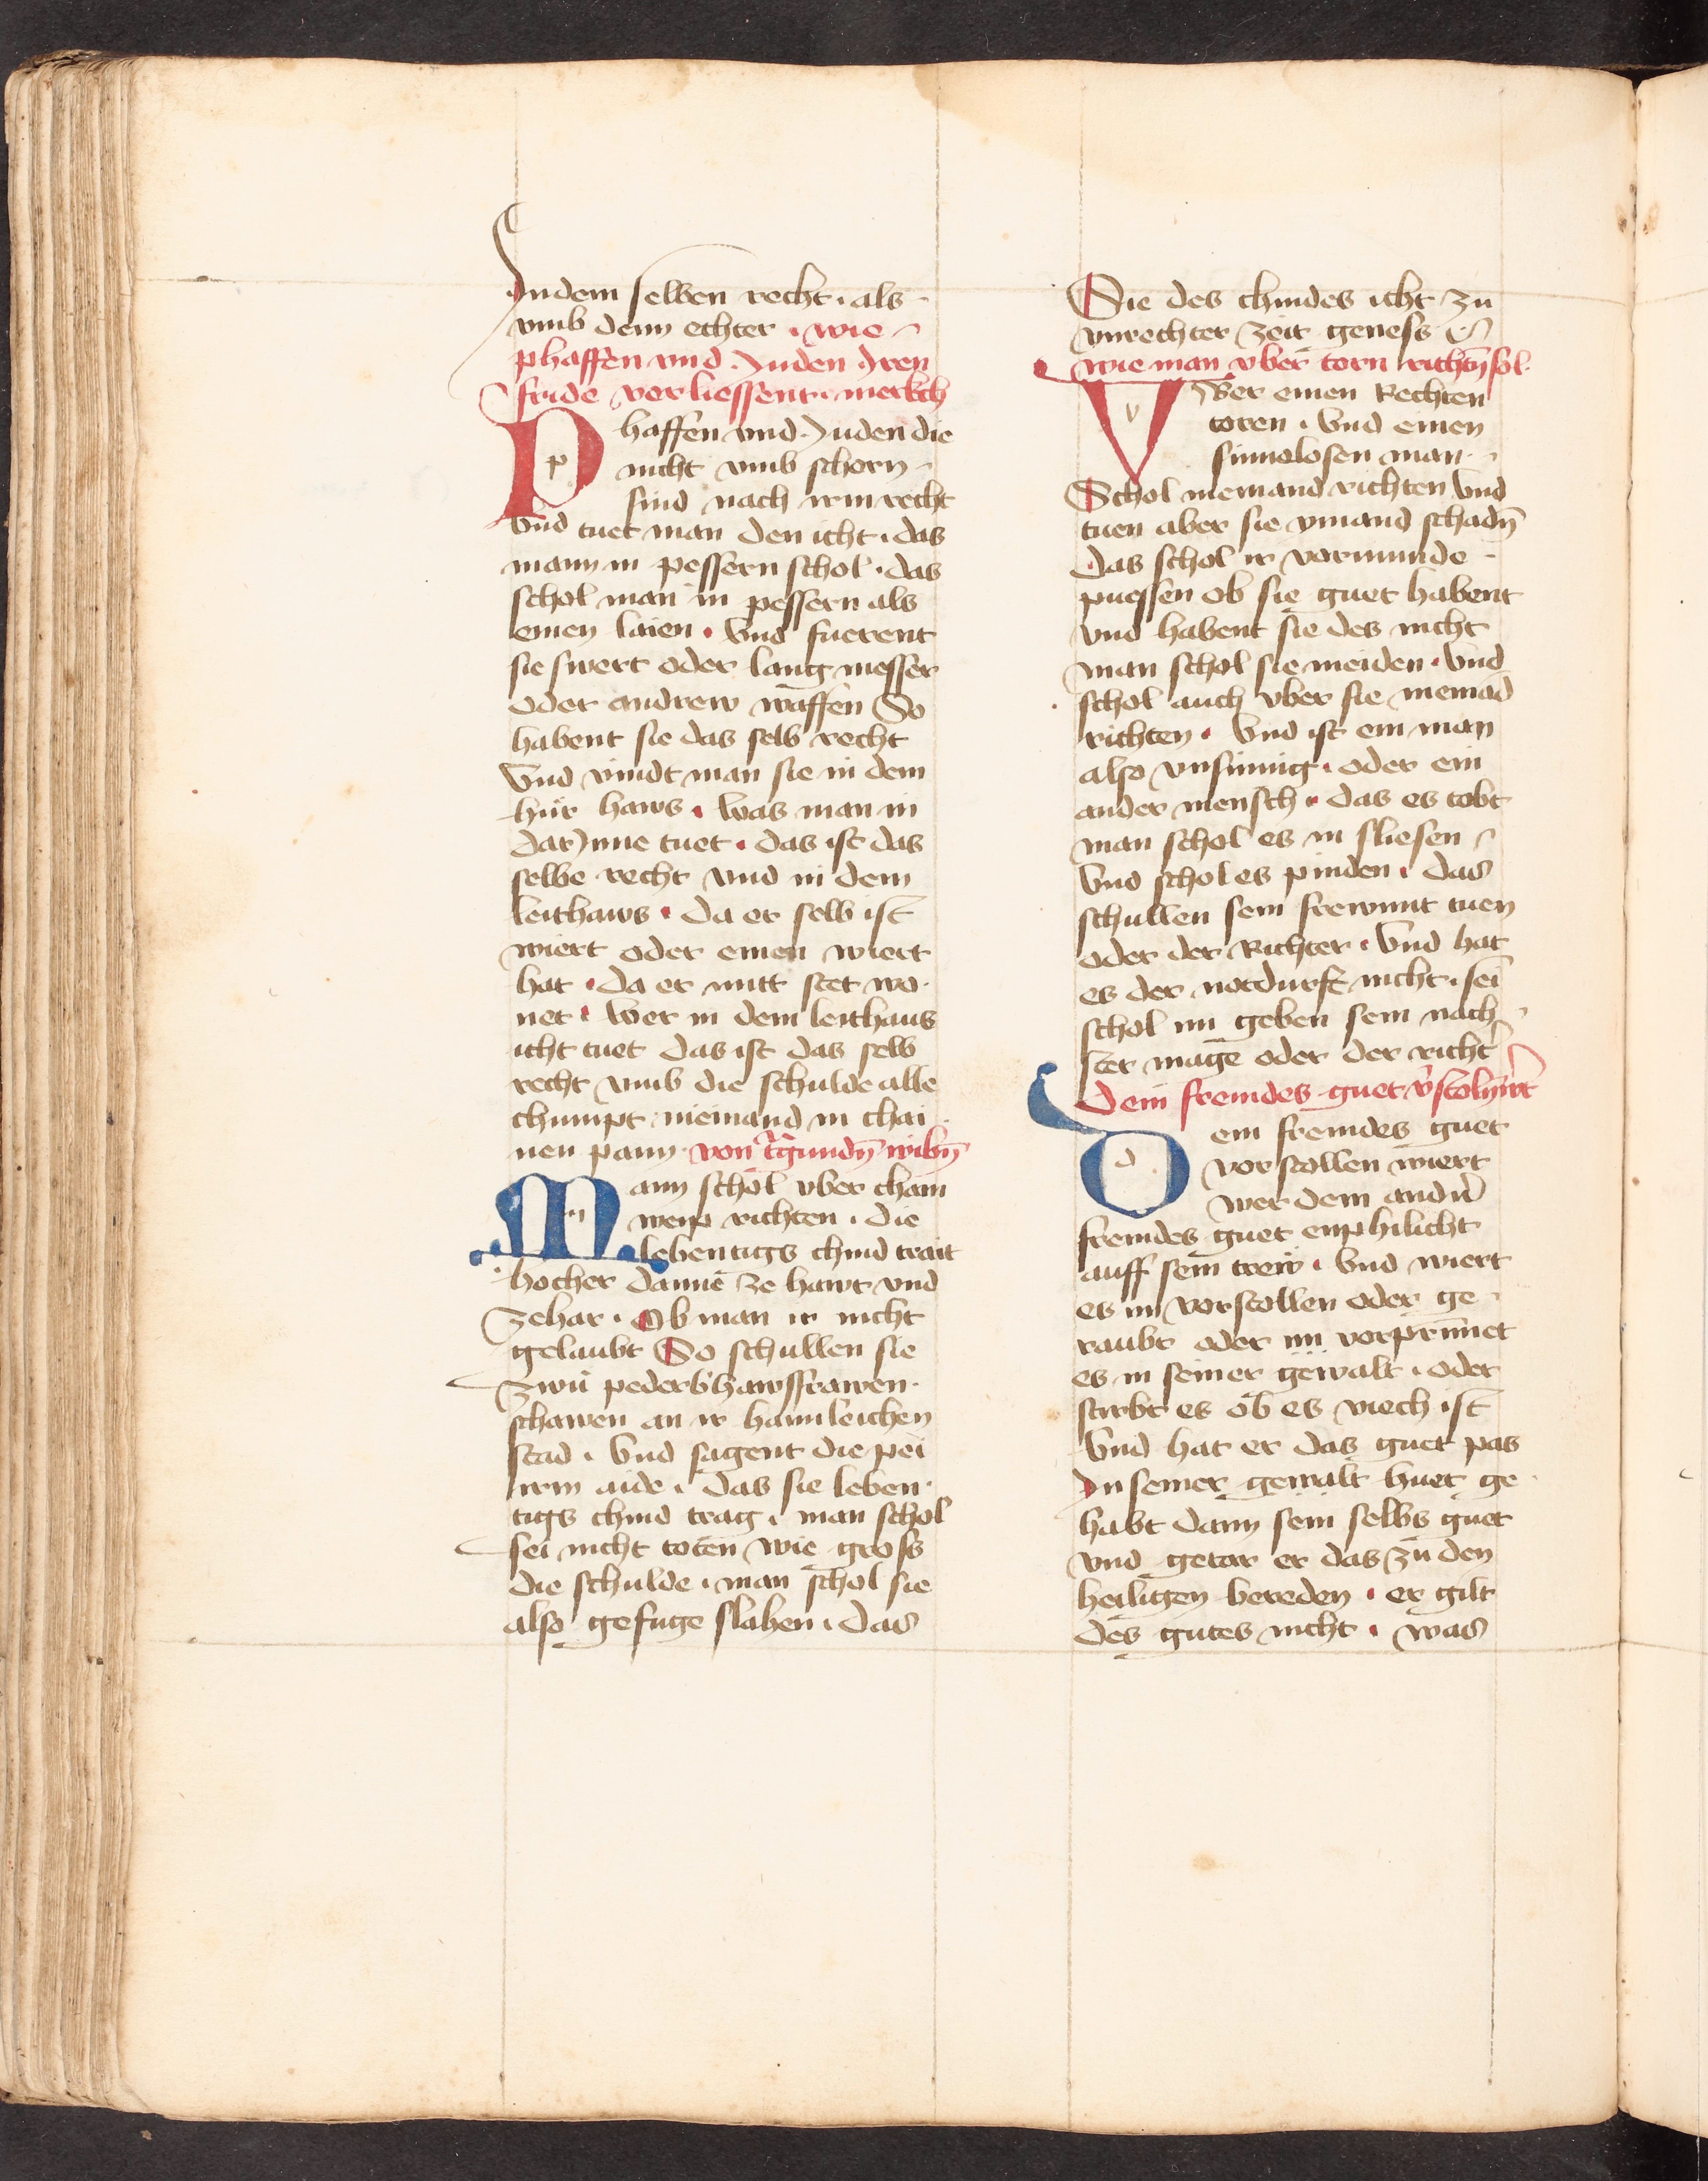 Indem selben recht · als
vmb denn echter · wie
phaffen vnd Juden Jren
fride verliessent · merkch
Phaffen vnd Juden die
nicht vmb schorn
sind nach irm recht
vnd tuet man den icht · das
mann in pessern schol · das
schol man in pessern als
einen laien · Vnd fuerent
sie swert oder lang messer
oder andrew waffen So
habent sie das selb recht
Vnd vindt man sie in dem
hur haws · was man in
darJnne tuet · das ist das
selbe recht vnd in dem
leithaws · da er selb ist
wiert oder einen wiert
hat · da er mitt stet wo
net · Wer in dem leithaus
icht tuet das ist das selb
recht vmb die schulde alle
chumpt niemand in chai
nen pann von
Mann schol vber chain
weyp richten · die
lebentigs chind trait
hocher danne ze hawt vnd
zehar · Ob man ir nicht
gelaubt So schullen sie
zwu pederb hawsfrawen
schawen an ir haimleichen
stad · Vnd sagent die pei
irm aide · das sie leben
tigs chind trag · man schol
sei nicht toten wie gross
die schulde · man schol sie
also gefuge slahen · das
Sie des chindes icht zu
vnrechter zeit geness
wie man vber torn richtn̄ sol
VBer einen Rechten
toren · Vnd einen
sinnelosen man
Schol niemand richten Vnd
tuen aber sie ymand schadn̄
das schol ir vormunde
puessen ob sie guet habent
vnd habent sie des nicht
man schol sie meiden · Vnd
schol auch vber sie niemād
richten · Vnd ist ein man
also vnsinnig · oder ein
ander mensch · das es tobt
man schol es in sliesen
Vnd schol es pinden · das
schullen sein frewnnt tuen
oder der Richter · Vnd hat
es der notdurft nicht · sei
schol im geben sein nach
ster mage oder der richt
Dem fremdes guet v̄stoln̄ wrt
Dem fremdes guet
vorstollen wiert
wer dem andn̄
fremdes guet enphilicht
auff sein trew · Vnd wiert
es im vorstollen oder ge
raubt oder im vorprinnet
es in seiner gewalt · oder
stirbt es ob es viech ist
Vnd hat er das guet pas
Jn seiner gewalt huet ge
habt dann sein selbs guet
vnd getar er das zu den
heiligen bereden · er gilt
des gutes nicht · was